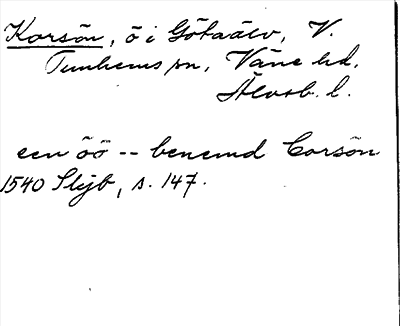 Korsön, ö i Götaälv, V.
Tunhems sn, Väne hd,
Älvsb. l.
een öö -- benemd Corsön
1540 Slijb, s. 147.